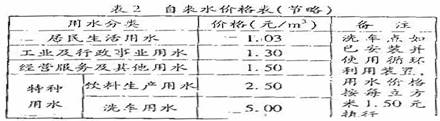 表2 自来水价格表(节略)
用水分类 价格(元/m³) 备注
居民生活用水 1.03
工业及行政事业用水 1.30
经营服务及其他用水 1.50
特种用水 饮料生产用水 2.50
洗车用水 5.00
洗车点如
已安装并
使用循环
利用装置,
用水价格
按每立方
米1.50元
执行